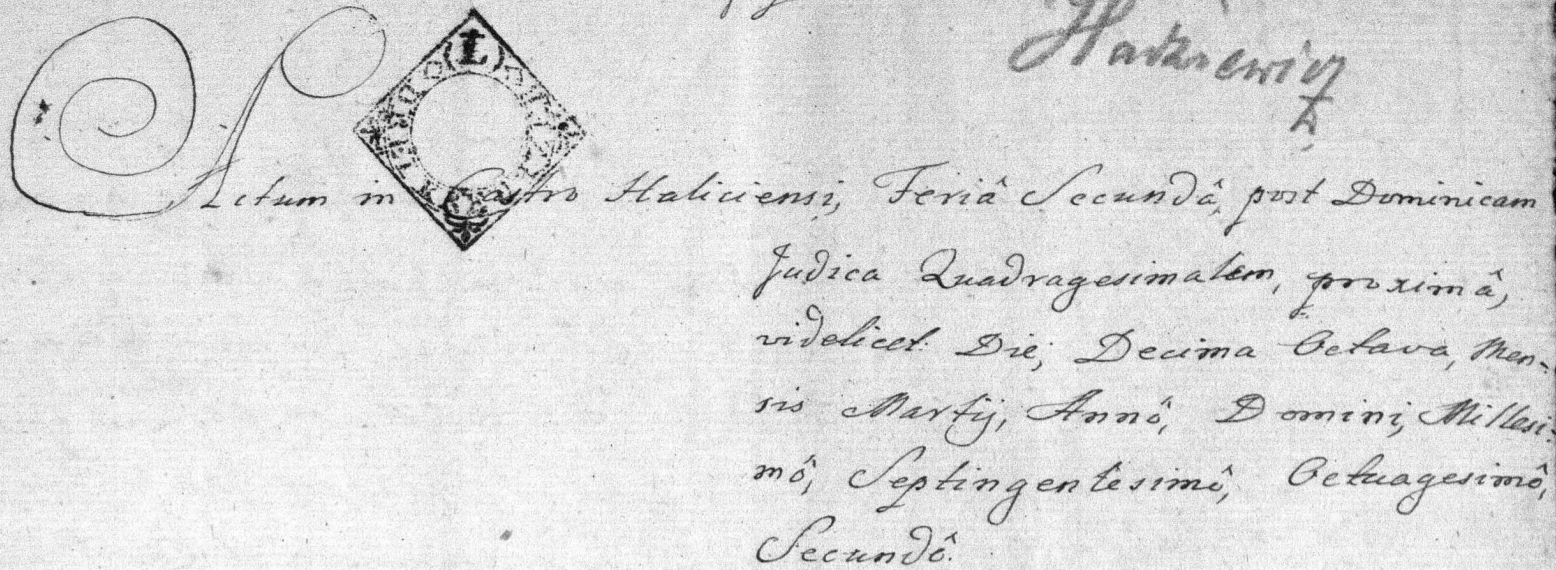 Hatziewicz
Actum in Castro Haliciensi, Feriâ Secundâ, post Dominicam
Judica Quadragesimalem, proximâ,
videlicet Die, Decima Octava, Men-
sis Martij, Annô, Domini, Millesi-
mô, Septingentesimô, Octuagesimô,
Secundô.